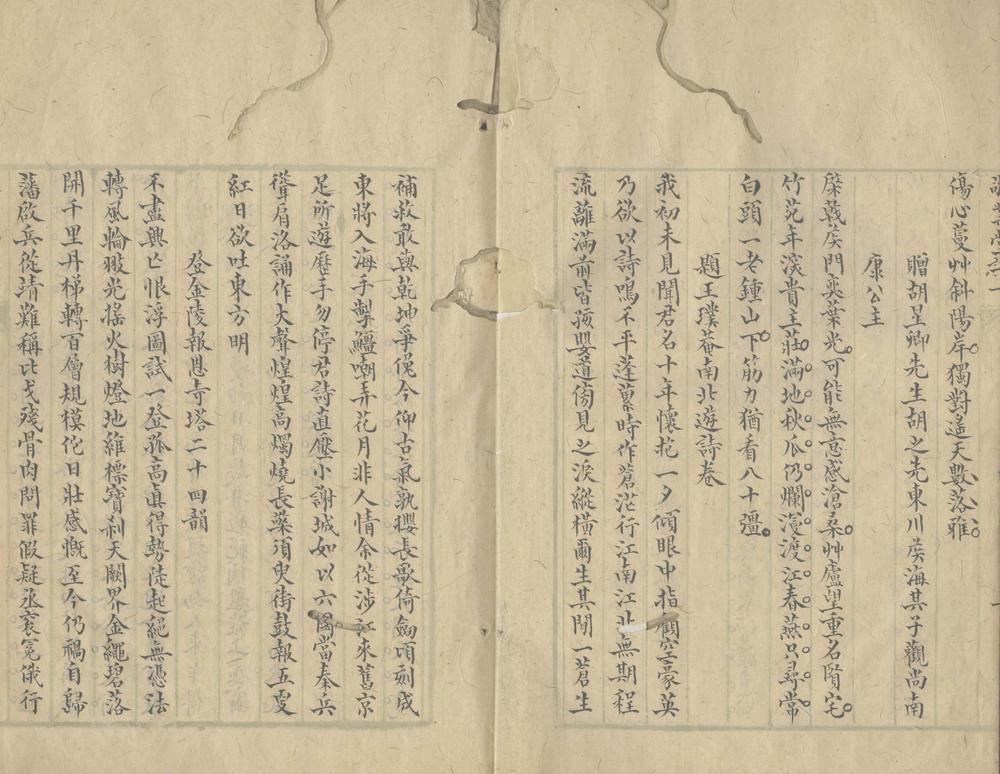 傷心蔓艸斜陽岸獨對遙天數落雅
贈胡星卿先生胡之先東川矦海其子觀尚南
康公主
棨戟矦門奕葉光可能無意感滄桑艸廬望重名賢宅
竹苑年深貴主莊滿地秋瓜仍爛漫渡江春燕只尋常
白頭一老鍾山下筋力猶看八十彊
題王璞菴南北遊詩卷
我初未見聞君名十年懷抱一夕傾眼中指顧空豪英
乃欲以詩鳴不平蓬藁時作蒼茫行江南江北無期程
流離滿前皆孩嬰道傍見之淚縱橫爾生其間一蒼生
補救敢與乾坤爭俛今仰古氣孰攖長歌倚劒頃刻成
東將入海手掣鱷嘲弄花月非人情余從涉江來舊京
足所遊歷手勿停君詩直壓小謝城如以六國當秦兵
聳肩洛誦作大聲煌煌高燭燒長檠須臾街鼓報五更
紅日欲吐東方明
登金陵報恩寺塔二十四韻
不盡興亡恨浮圖試一登孤高真得勢徒起絕無憑法
轉風輪翊光搖火樹燈地維標寶刹天闕界金繩碧落
開千里丹梯轉百層規模佗日壯感慨至今仍禍自歸
藩啟兵從靖難稱比戈殘骨肉問罪假疑丞袞冕俄行